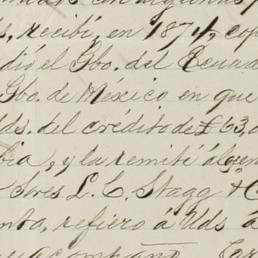 s, recibí, en 1874, cop
dió el Gbo. del Ecua
Gbo. de Mexico en que
ds. del crédito de £63,0
bia, y la remití á
Sres L. C. Stagg & C
nto, refiero á Uds á